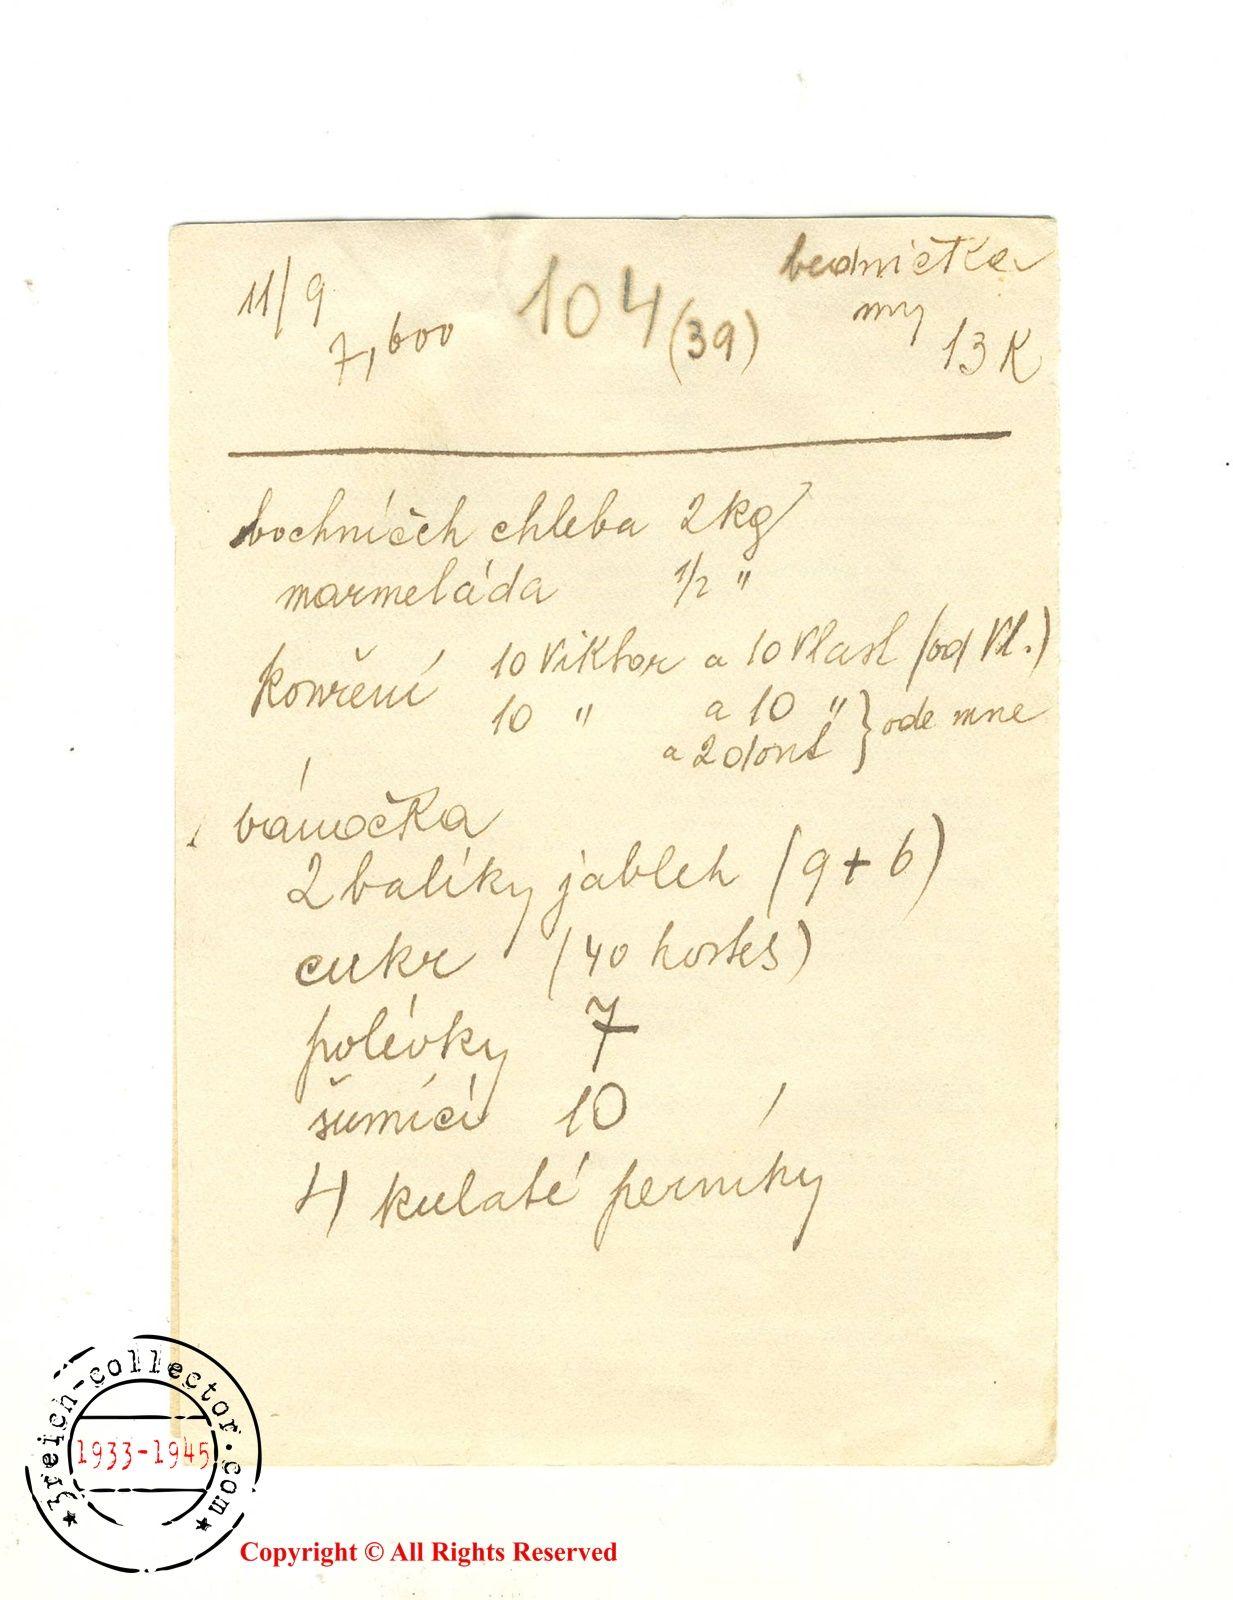 11/9 104 bednička
7,600 (39) my
13 K
bochníčch chleba 2 kg
marmeláda 1/2 "
kouření 10 Viktor a 10 Vlast (od Vl.)
10 " a 10 " } ode mne
a 2 dout
vánočka
2 balíky jableh (9 + 6)
cukr (40 kostes)
polévky 7
šumící 10
4 kulaté perníky
3reich-collector.com
1933-1945
Copyright © All Rights Reserved